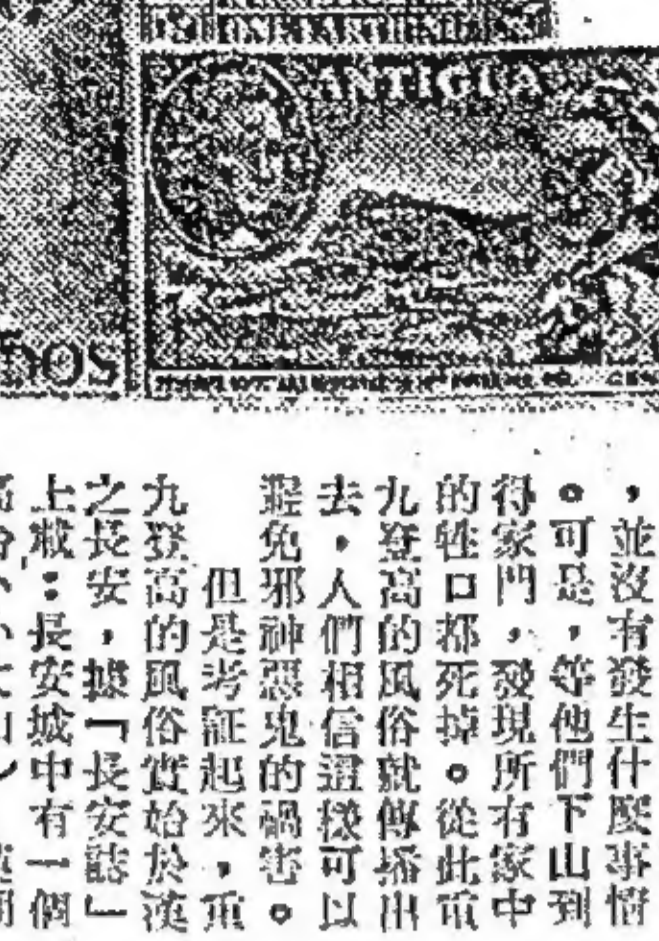 ONE FARTHING
ANTIGUA
DOS
，並沒有發生什麼事情
。可是，等他們下山到
得家門，發現所有家中
的牲口都死掉。從此重
九登高的風俗就傳播出
去，人們相信這樣可以
避免邪神惡鬼的禍害。
但是考証起來，重
九登高的風俗實始於漢
之長安，據「長安誌」
上載：長安城中有一個